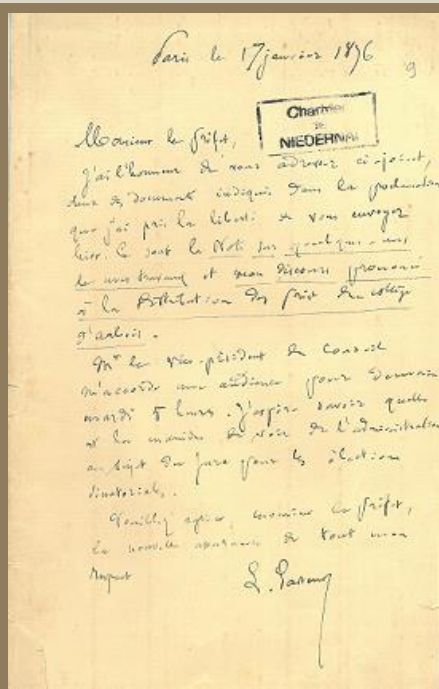 Paris le 17 janvier 1876
9
Charrier
DE
NIEDERNAI
Monsieur le Préfet,
J'ai l'honneur de vous adresser ci-joint,
deux des documents indiqués dans la proclamation
que j'ai pris la liberté de vous envoyer
hier. Ce sont la Note sur quelques-uns
de mes travaux et mon discours prononcé
à la Distribution des prix du collège
d'Arbois.
Mr le Vice-président du Conseil
m'accorde une audience pour demain
mardi 5 heures. J'espère savoir quelle
est la manière de voir de l'administration
au sujet du Jura pour les élections
sénatoriales.
Veuillez agréer, monsieur le Préfet,
la nouvelle assurance de tout mon
respect
L. Pasteur